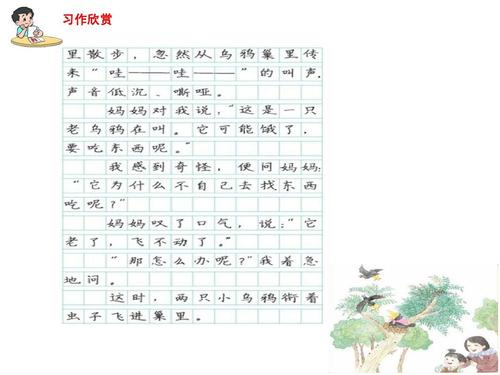 习作欣赏
里散步，忽然从乌鸦巢里传
来“哇——哇——”的叫声，
声音低沉、嘶哑。
妈妈对我说，“这是一只
老乌鸦在叫。它可能饿了，
要吃东西呢。”
我感到奇怪，便问妈妈：
“它为什么不自己去找东西
吃呢？”
妈妈叹了口气，说：“它
老了，飞不动了。”
“那怎么办呢？”我着急
地问。
这时，两只小乌鸦衔着
虫子飞进巢里。